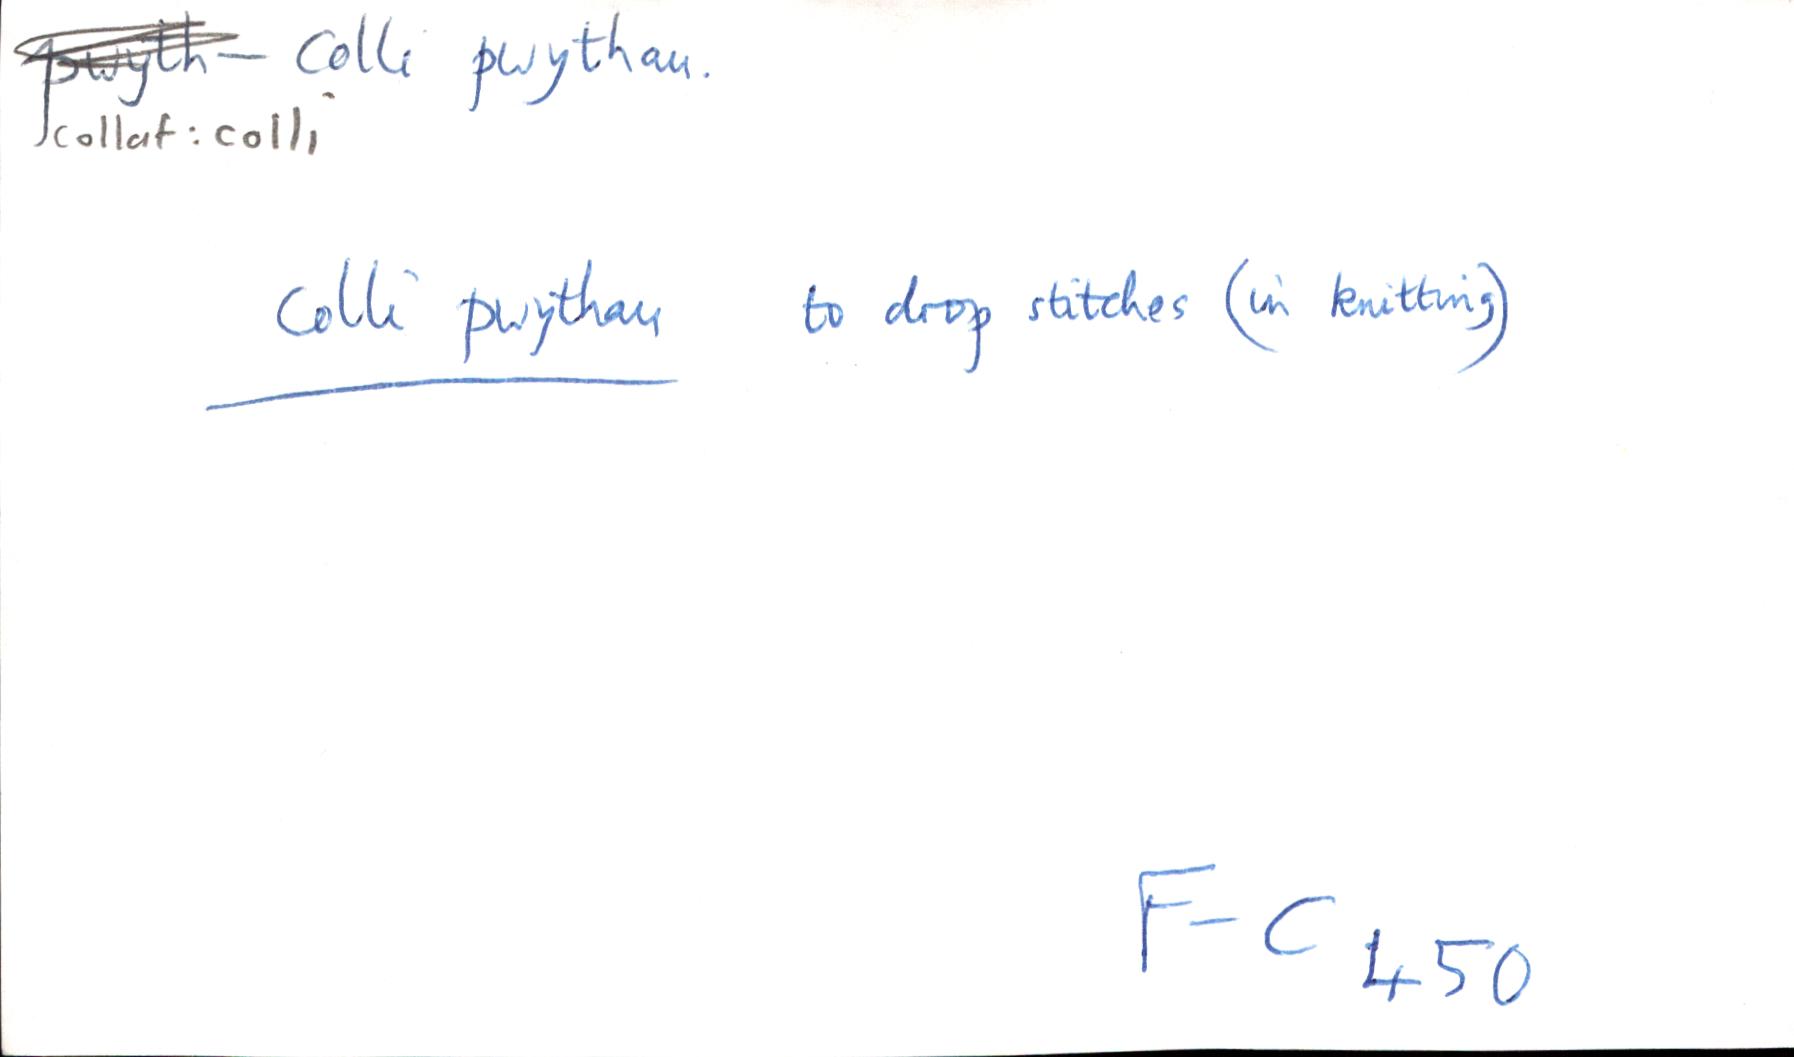 pwyth — Colli pwythau.
collaf: colli
Colli pwythau to drop stitches (in knitting)
F-C 450